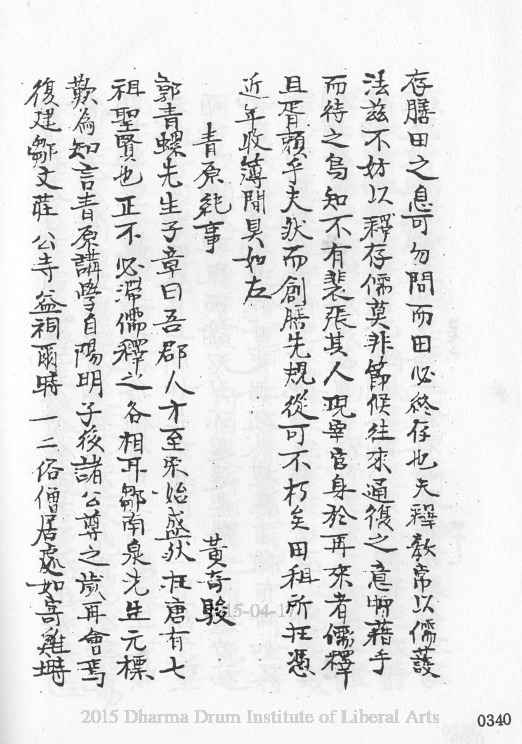 存膳田之息可勿問而田必終存也夫釋教常以儒護
法茲不妨以釋存儒莫非節候往來通復之意聊藉手
而待之烏知不有裴張其人現宰官身於再來者儒釋
且胥賴乎夫然而創膳先規從可不朽矣田租所在憑
近年收簿開具如左
青原純事
黃奇駿
郭青螺先生子章曰吾郡人才至宋始盛狀在唐有七
祖聖賢也正不必滯儒釋之各相耳鄒南泉先生元標
歎為知言青原講學自陽明子後諸公尊之歲再會焉
復建鄒文莊 公寺益祠爾時一二俗僧居處如寄雞塒
2015-04-17
2015 Dharma Drum Institute of Liberal Arts
0340